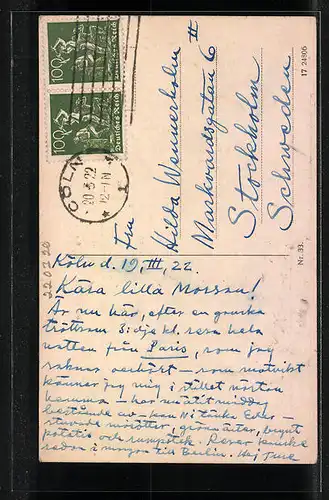 100
Deutsches Reich
100
Deutsches Reich
CÖLN
20.3.22
12-1N
* 1
17 24806
Nr. 33.
22 03 20
Fru
Hilda Wennerholm
Markvardsgatan 6 II
Stockholm
Schweden
Köln d. 19, III, 22.
Kära lilla Morsan!
Är nu här, efter en ganska
tröttsam kl. resa hela
natten från Paris, som jag
saknar oerhört – som motvikt
känner jag mig i stället nästan
hemma – har ätit middag
bestående av – kan Ni tänka Eder –
stuvade morötter, grönärter, brynt
potatis och rumpstek. Reser kanske
redan i morgon till Berlin. Hej Ture